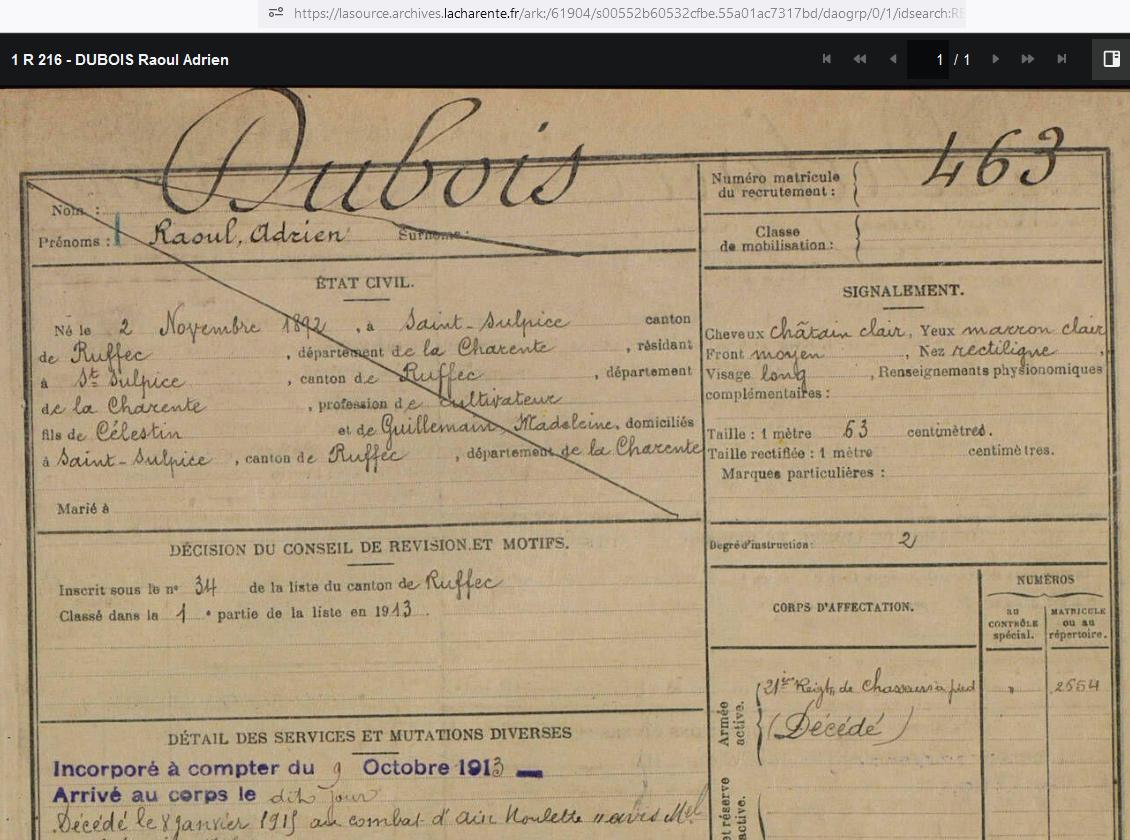 https://lasource.archives.lacharente.fr/ark:/61904/s00552b60532cfbe.55a01ac7317bd/daogrp/0/1/idsearch:RE
1 R 216 - DUBOIS Raoul Adrien
1 / 1
Nom :
Dubois
Prénoms : Raoul, Adrien Surnoms :
Numéro matricule
du recrutement :
463
Classe
de mobilisation :
ÉTAT CIVIL.
Né le 2 Novembre 1892, à Saint-Sulpice canton
de Ruffec, département de la Charente, résidant
à St Sulpice, canton de Ruffec, département
de la Charente, profession de cultivateur
fils de Célestin et de Guillemain, Madeleine, domiciliés
à Saint-Sulpice, canton de Ruffec, département de la Charente
Marié à
SIGNALEMENT.
Cheveux châtain clair, Yeux marron clair
Front moyen, Nez rectiligne,
Visage long, Renseignements physionomiques
complémentaires :
Taille : 1 mètre 63 centimètres.
Taille rectifiée : 1 mètre centimètres.
Marques particulières :
Degré d'instruction : 2
DÉCISION DU CONSEIL DE REVISION ET MOTIFS.
Inscrit sous le n° 34 de la liste du canton de Ruffec
Classé dans la 1 e partie de la liste en 1913.
CORPS D'AFFECTATION.
NUMÉROS
au
CONTRÔLE
spécial.
MATRICULE
ou au
répertoire.
Armée
active.
de Chasseurs à pied " 2554
(Décédé)
DÉTAIL DES SERVICES ET MUTATIONS DIVERSES
Incorporé à compter du 9 Octobre 1913
Arrivé au corps le dit jour
Décédé le 8 janvier 1915 au combat d'Aix Noulette avis
et réserve
active.